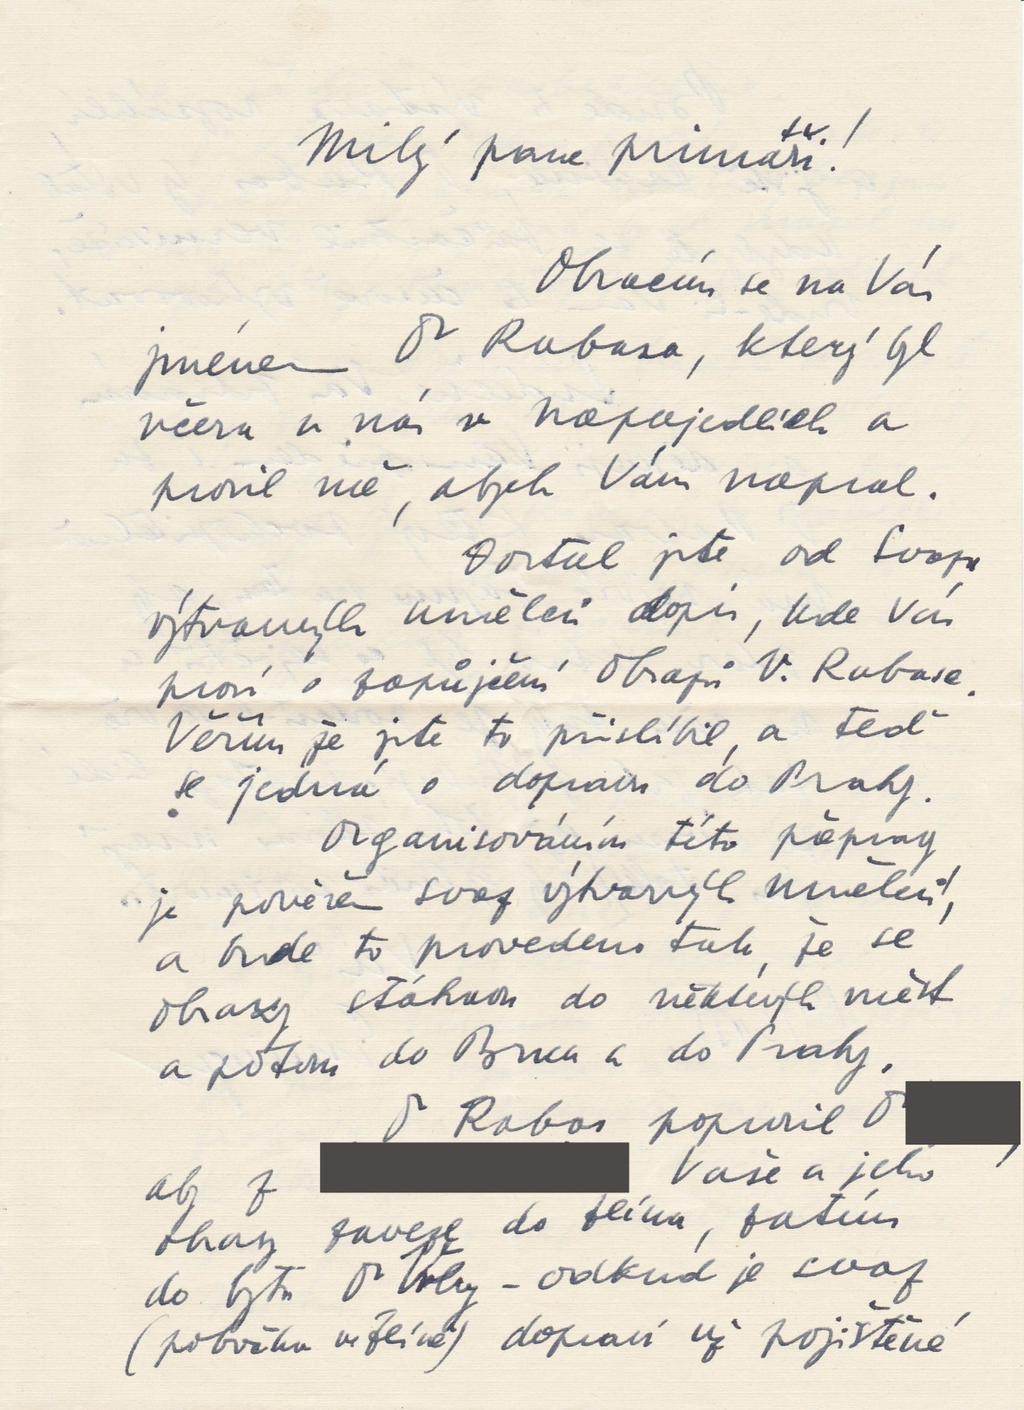 Milý pane primáři!
Obracím se na Vás
jménem Dr Rabasa, který byl
včera u nás v Napajedlích a
prosil mě, abych Vám napsal.
Dostal jste od Svazu
výtvarných umělců dopis, kde Vás
prosí o zapůjčení obrazů V. Rabase.
Věřím že jste to přislíbil, a teď
se jedná o dopravu do Prahy.
Organisováním této přepravy
je pověřen svaz výtvarných umělců,
a bude to provedeno tak, že se
obrazy stáhnou do některých měst
a potom do Brna a do Prahy.
Dr Rabas poprosil Dr
aby z Vaše a jeho
obrazy zavezl do Zlína, zatím
do bytu Dr - odkud je svaz
(pobočka ve Zlíně) dopraví už pojištěné